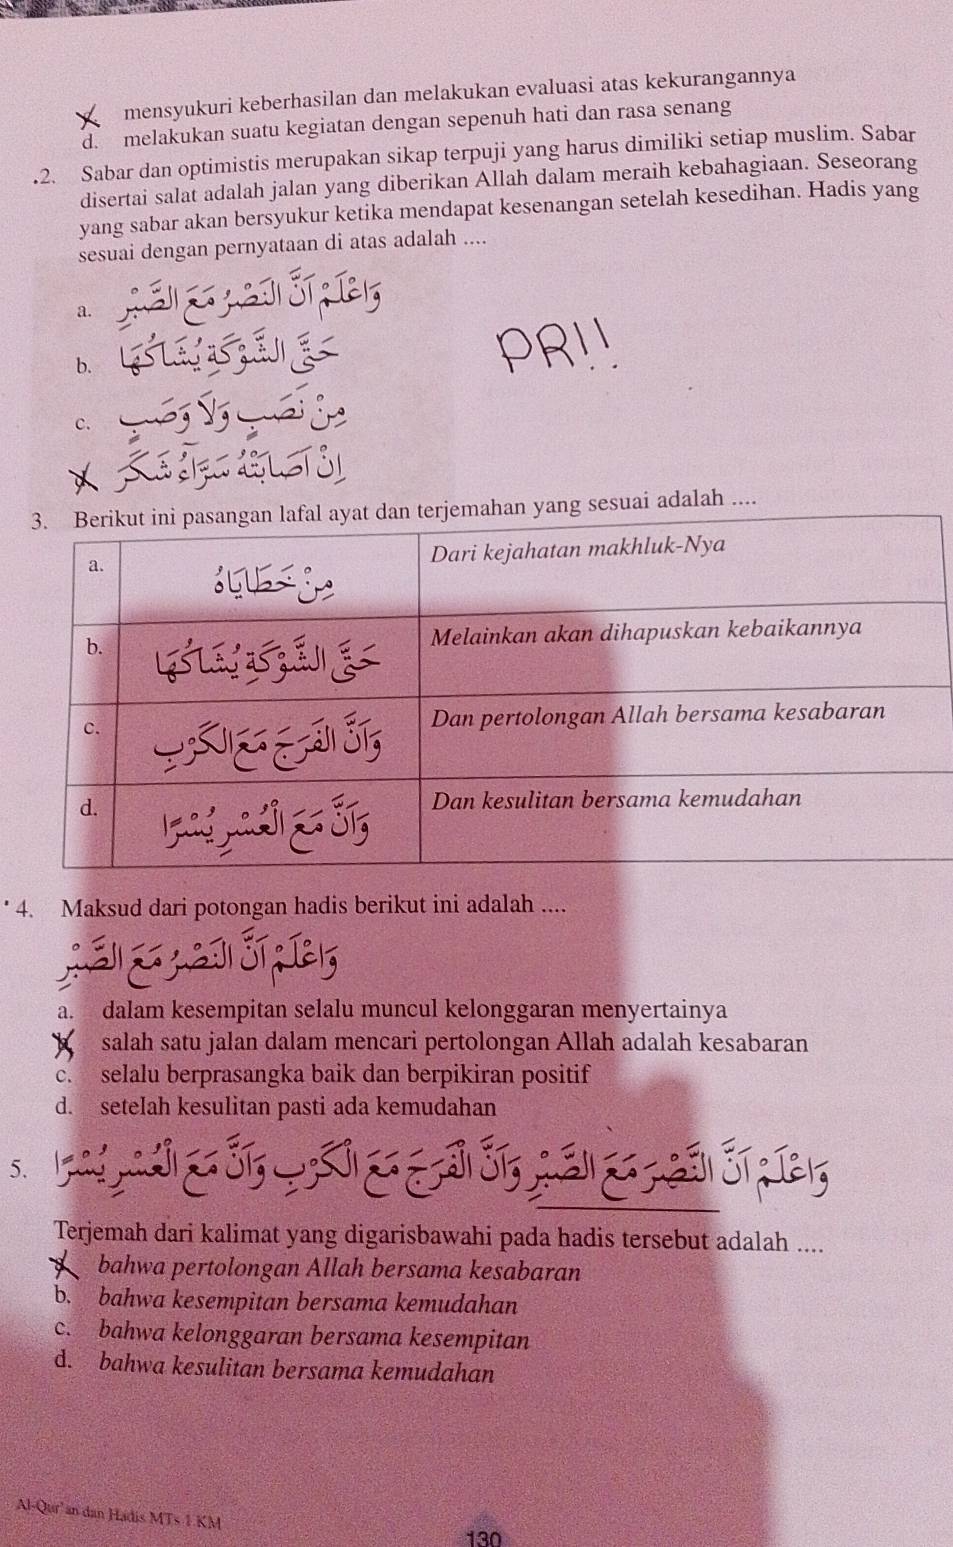 mensyukuri keberhasilan dan melakukan evaluasi atas kekurangannya
d. melakukan suatu kegiatan dengan sepenuh hati dan rasa senang
2. Sabar dan optimistis merupakan sikap terpuji yang harus dimiliki setiap muslim. Sabar
disertai salat adalah jalan yang diberikan Allah dalam meraih kebahagiaan. Seseorang
yang sabar akan bersyukur ketika mendapat kesenangan setelah kesedihan. Hadis yang
sesuai dengan pernyataan di atas adalah ....
a. وَاعْلَمْ أَنَّ النَّصْرَ مَعَ الصَّبْرِ
b. حَتَّى الشَّوْكَةِ يُشَاكُهَا
PR!!
c. مِنْ نَصَبٍ وَلَا وَصَبٍ
إِنْ أَصَابَتْهُ سَرَّاءُ شَكَرَ
3. Berikut ini pasangan lafal ayat dan terjemahan yang sesuai adalah ....
a. مِنْ خَطَايَاهُ Dari kejahatan makhluk-Nya
b. حَتَّى الشَّوْكَةِ يُشَاكُهَا Melainkan akan dihapuskan kebaikannya
c. وَأَنَّ الْفَرَجَ مَعَ الْكَرْبِ Dan pertolongan Allah bersama kesabaran
d. وَأَنَّ مَعَ الْعُسْرِ يُسْرًا Dan kesulitan bersama kemudahan
4. Maksud dari potongan hadis berikut ini adalah ....
وَاعْلَمْ أَنَّ النَّصْرَ مَعَ الصَّبْرِ
a. dalam kesempitan selalu muncul kelonggaran menyertainya
salah satu jalan dalam mencari pertolongan Allah adalah kesabaran
c. selalu berprasangka baik dan berpikiran positif
d. setelah kesulitan pasti ada kemudahan
5. وَاعْلَمْ أَنَّ النَّصْرَ مَعَ الصَّبْرِ وَأَنَّ الْفَرَجَ مَعَ الْكَرْبِ وَأَنَّ مَعَ الْعُسْرِ يُسْرًا
Terjemah dari kalimat yang digarisbawahi pada hadis tersebut adalah ....
bahwa pertolongan Allah bersama kesabaran
b. bahwa kesempitan bersama kemudahan
c. bahwa kelonggaran bersama kesempitan
d. bahwa kesulitan bersama kemudahan
Al-Qur'an dan Hadis MTs 1 KM
130